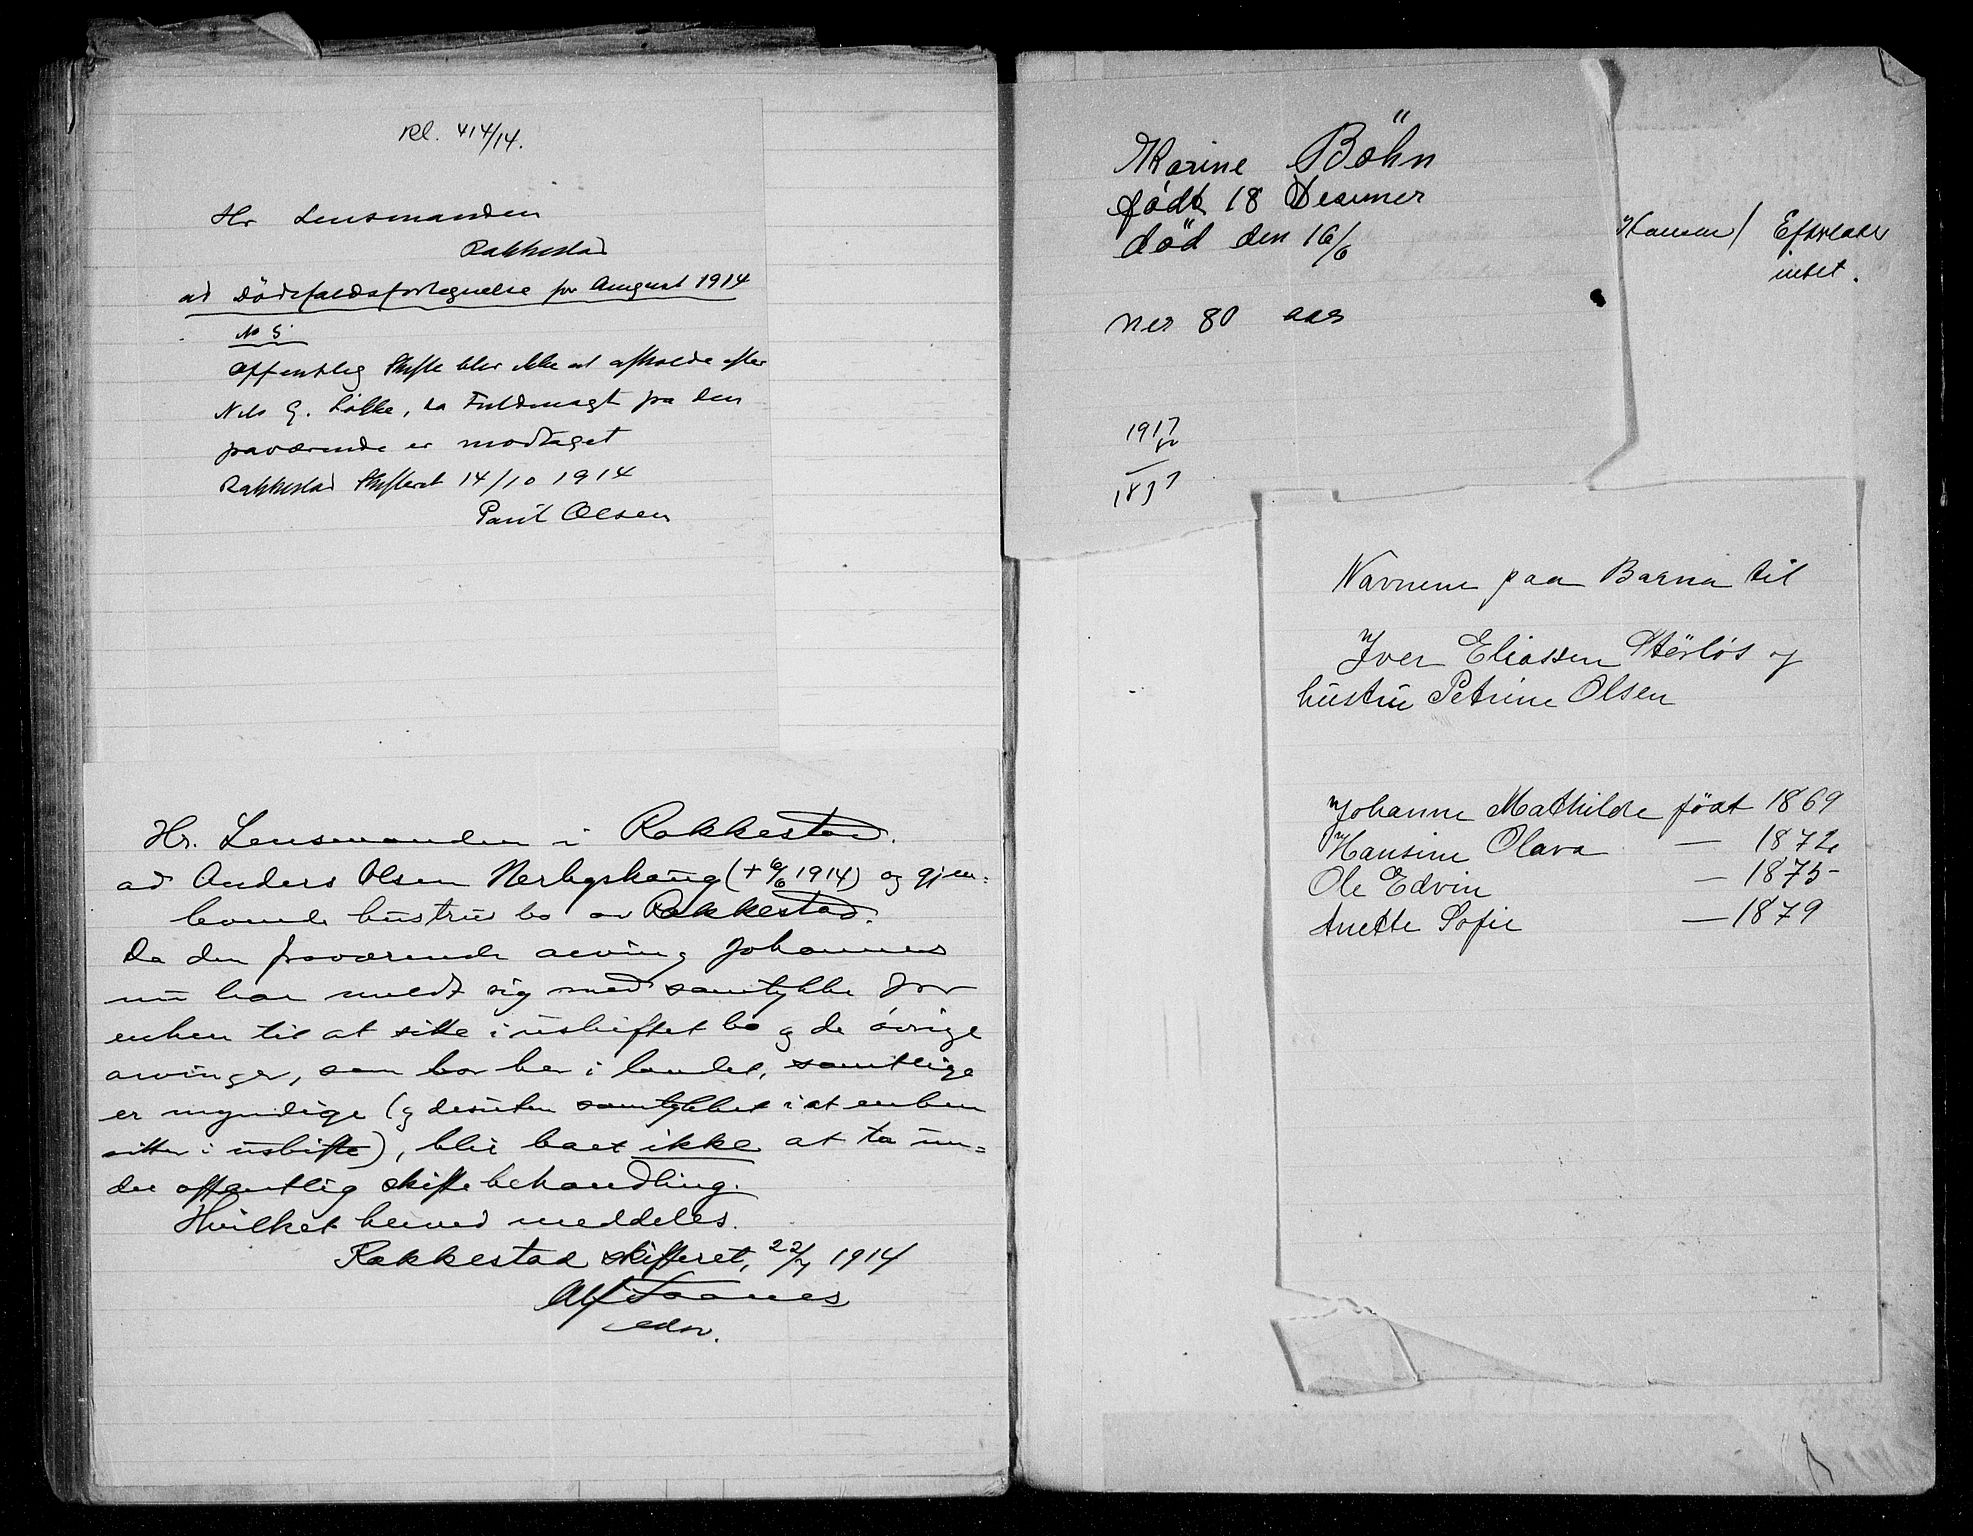 rel. 414/14.
Hr Lensmanden
Rakkestad
ad Dödsfaldsfortegnelse for August 1914
No 5
Offentlig Skifte blir ikke at afholde efter
Nils G. Løkke, da Fuldmagt fra den
fraværende er modtaget
Rakkestad Skifteret 14/10 1914
Paul Olsen
Hr. Lensmanden i Rakkestad.
ad Anders Olsen Nerbyshaug (+ 6/6 1914) og gjen-
levende hustrus bo av Rakkestad.
Da den fraværende arving Johannes
nu har meldt sig med samtykke for
enken til at sitte i uskiftet bo og de øvrige
arvinger, som bor her i landet, samtlige
er myndige (og desuten samtykket i at enken
sitter i uskifte), blir boet ikke at ta un-
der offentlig skiftebehandling.
Hvilket herved meddeles.
Rakkestad skifteret, 22/7 1914
Alf
edsv.
Marine Böhn
født 18 Desemer
död den 16/6
ner 80 aar
1917
80
1837
Hansen / Efterlader
intet.
Navnene paa Barna til
Iver Eliassen Störlös og
hustru Petrine Olsen
Johanne Mathilde födt 1869
Hansine Olava — 1872
Ole Edvin — 1875
Anette Sofie — 1879